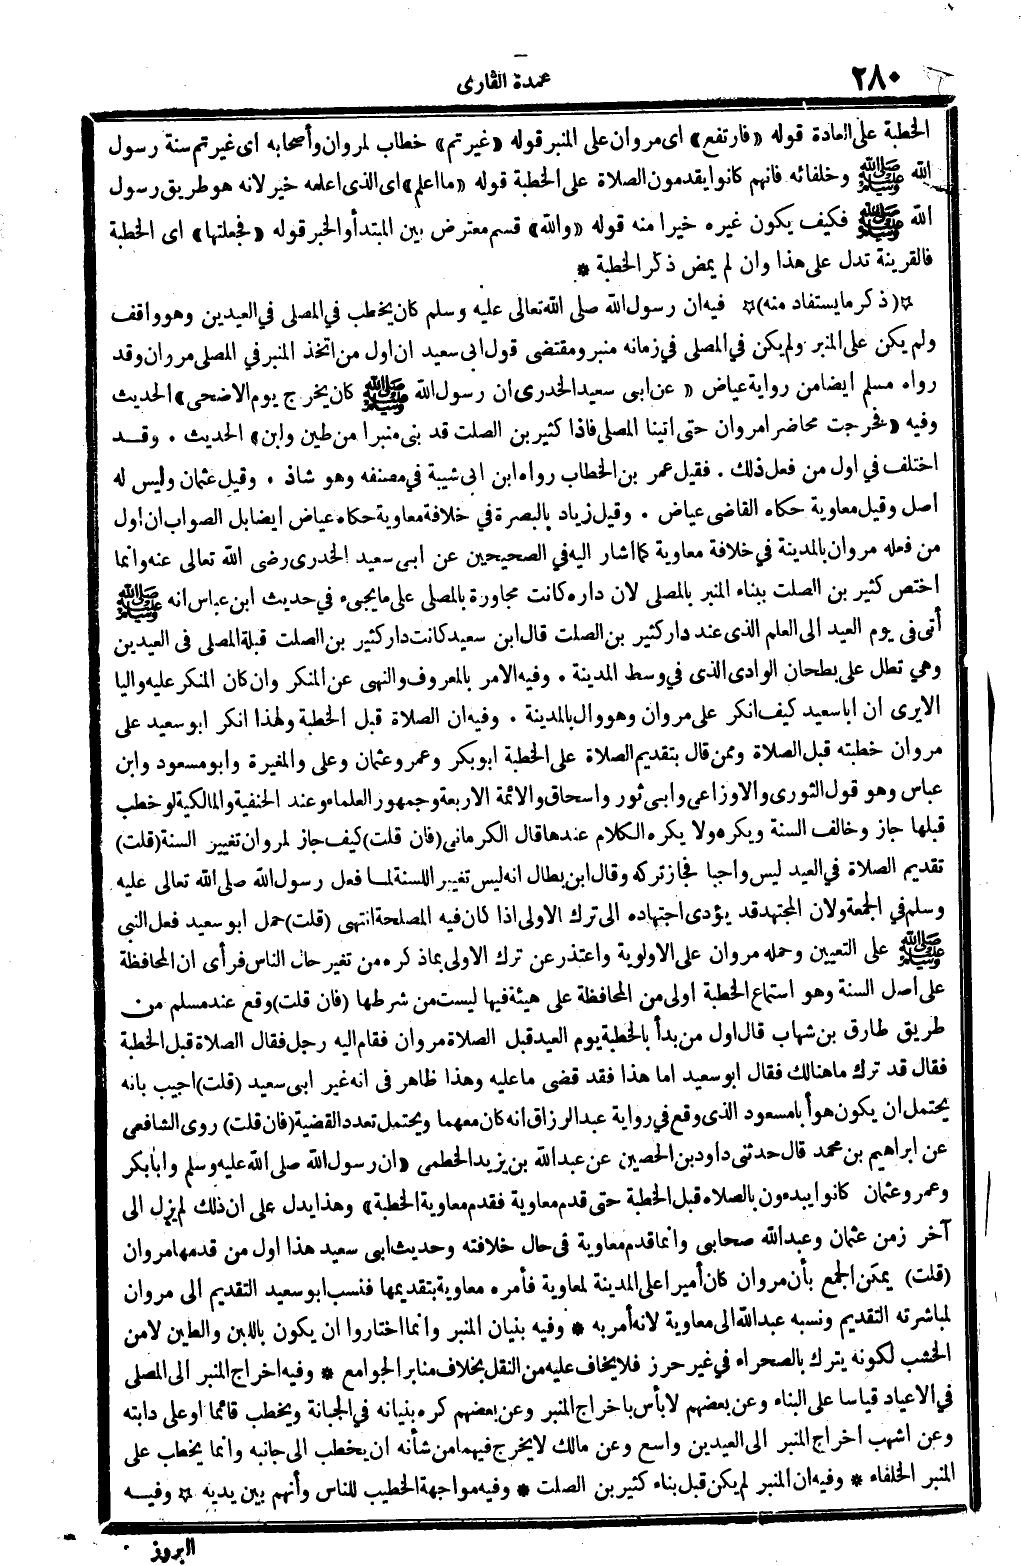 ٢٨٠
عمدة القارى
الخطبة على العادة قوله «فارتفع» اى مروان على المنبر قوله «غيرتم» خطاب لمروان وأصحابه اى غيرتم سنة رسول
الله ﷺ وخلفائه فانهم كانوا يقدمون الصلاة على الخطبة قوله «ما اعلم» اى الذى اعلمه خير لانه هو طريق رسول
الله ﷺ فكيف يكون غيره خيرا منه قوله «والله» قسم معترض بين المبتدأ والخبر قوله «فجعلتها» اى الخطبة
فالقرينة تدل على هذا وان لم يمض ذكر الخطبة *
☆(ذكر ما يستفاد منه)☆ فيه ان رسول الله صلى الله تعالى عليه وسلم كان يخطب في المصلى في العيدين وهو واقف
ولم يكن على المنبر ولم يكن في المصلى في زمانه منبر ومقتضى قول ابى سعيد ان اول من اتخذ المنبر في المصلى مروان وقد
رواه مسلم ايضا من رواية عياض «عن ابى سعيد الخدرى ان رسول الله ﷺ كان يخرج يوم الاضحى» الحديث
وفيه «فخرجت محاضرا مروان حتى اتينا المصلى فاذا كثير بن الصلت قد بنى منبرا من طين ولبن» الحديث . وقد
اختلف في اول من فعل ذلك . فقيل عمر بن الخطاب رواه ابن ابى شيبة في مصنفه وهو شاذ . وقيل عثمان وليس له
اصل وقيل معاوية حكاه القاضى عياض . وقيل زياد بالبصرة في خلافة معاوية حكاه عياض ايضا بل الصواب ان اول
من فعله مروان بالمدينة في خلافة معاوية كما اشار اليه في الصحيحين عن ابى سعيد الخدرى رضى الله تعالى عنه وانما
اختص كثير بن الصلت ببناء المنبر بالمصلى لان داره كانت مجاورة بالمصلى على ما يجىء في حديث ابن عباس انه ﷺ
أتى فى يوم العيد الى العلم الذى عند دار كثير بن الصلت قال ابن سعيد كانت دار كثير بن الصلت قبلة المصلى فى العيدين
وهي تطل على بطحان الوادى الذى في وسط المدينة . وفيه الامر بالمعروف والنهى عن المنكر وان كان المنكر عليه واليا
الا يرى ان ابا سعيد كيف انكر على مروان وهو وال بالمدينة . وفيه ان الصلاة قبل الخطبة ولهذا انكر ابو سعيد على
مروان خطبته قبل الصلاة وممن قال بتقديم الصلاة على الخطبة ابو بكر وعمر وعثمان وعلى والمغيرة وابو مسعود وابن
عباس وهو قول الثورى والاوزاعى وابى ثور واسحاق والائمة الاربعة وجمهور العلماء وعند الحنفية والمالكية لو خطب
قبلها جاز وخالف السنة ويكره ولا يكره الكلام عندها قال الكرمانى (فان قلت) كيف جاز لمروان تغيير السنة (قلت)
تقديم الصلاة في العيد ليس واجبا فجاز تركه وقال ابن بطال انه ليس تغييرا للسنة لما فعل رسول الله صلى الله تعالى عليه
وسلم في الجمعة ولان المجتهد قد يؤدى اجتهاده الى ترك الاولى اذا كان فيه المصلحة انتهى (قلت) حمل ابو سعيد فعل النبي
ﷺ على التعيين وحمله مروان على الاولوية واعتذر عن ترك الاولى بما ذكره من تغير حال الناس فرأى ان المحافظة
على اصل السنة وهو استماع الخطبة اولى من المحافظة على هيئة فيها ليست من شرطها (فان قلت) وقع عند مسلم من
طريق طارق بن شهاب قال اول من بدأ بالخطبة يوم العيد قبل الصلاة مروان فقام اليه رجل فقال الصلاة قبل الخطبة
فقال قد ترك ما هنالك فقال ابو سعيد اما هذا فقد قضى ما عليه وهذا ظاهر فى انه غير ابى سعيد (قلت) اجيب بانه
يحتمل ان يكون هو أبا مسعود الذى وقع في رواية عبد الرزاق انه كان معهما ويحتمل تعدد القضية (فان قلت) روى الشافعى
عن ابراهيم بن محمد قال حدثنى داود بن الحصين عن عبد الله بن يزيد الخطمى «ان رسول الله صلى الله عليه وسلم وابا بكر
وعمر وعثمان كانوا يبدءون بالصلاه قبل الخطبة حتى قدم معاوية فقدم معاوية الخطبة» وهذا يدل على ان ذلك لم يزل الى
آخر زمن عثمان وعبد الله صحابى وانما قدم معاوية فى حال خلافته وحديث ابى سعيد هذا اول من قدمها مروان
(قلت) يمكن الجمع بأن مروان كان أميرا على المدينة لمعاوية فأمره معاوية بتقديمها فنسب ابو سعيد التقديم الى مروان
لمباشرته التقديم ونسبه عبد الله الى معاوية لانه أمر به * وفيه بنيان المنبر وانما اختاروا ان يكون باللبن والطين لا من
الخشب لكونه يترك بالصحراء في غير حرز فلا يخاف عليه من النقل بخلاف منابر الجوامع * وفيه اخراج المنبر الى المصلى
في الاعياد قياسا على البناء وعن بعضهم لا بأس باخراج المنبر وعن بعضهم كره بنيانه في الجبانة ويخطب قائما او على دابته
وعن اشهب اخراج المنبر الى العيدين واسع وعن مالك لا يخرج فيهما من شأنه ان يخطب الى جانبه وانما يخطب على
المنبر الخلفاء * وفيه ان المنبر لم يكن قبل بناء كثير بن الصلت * وفيه مواجهة الخطيب للناس وأنهم بين يديه ☆ وفيه
البروز